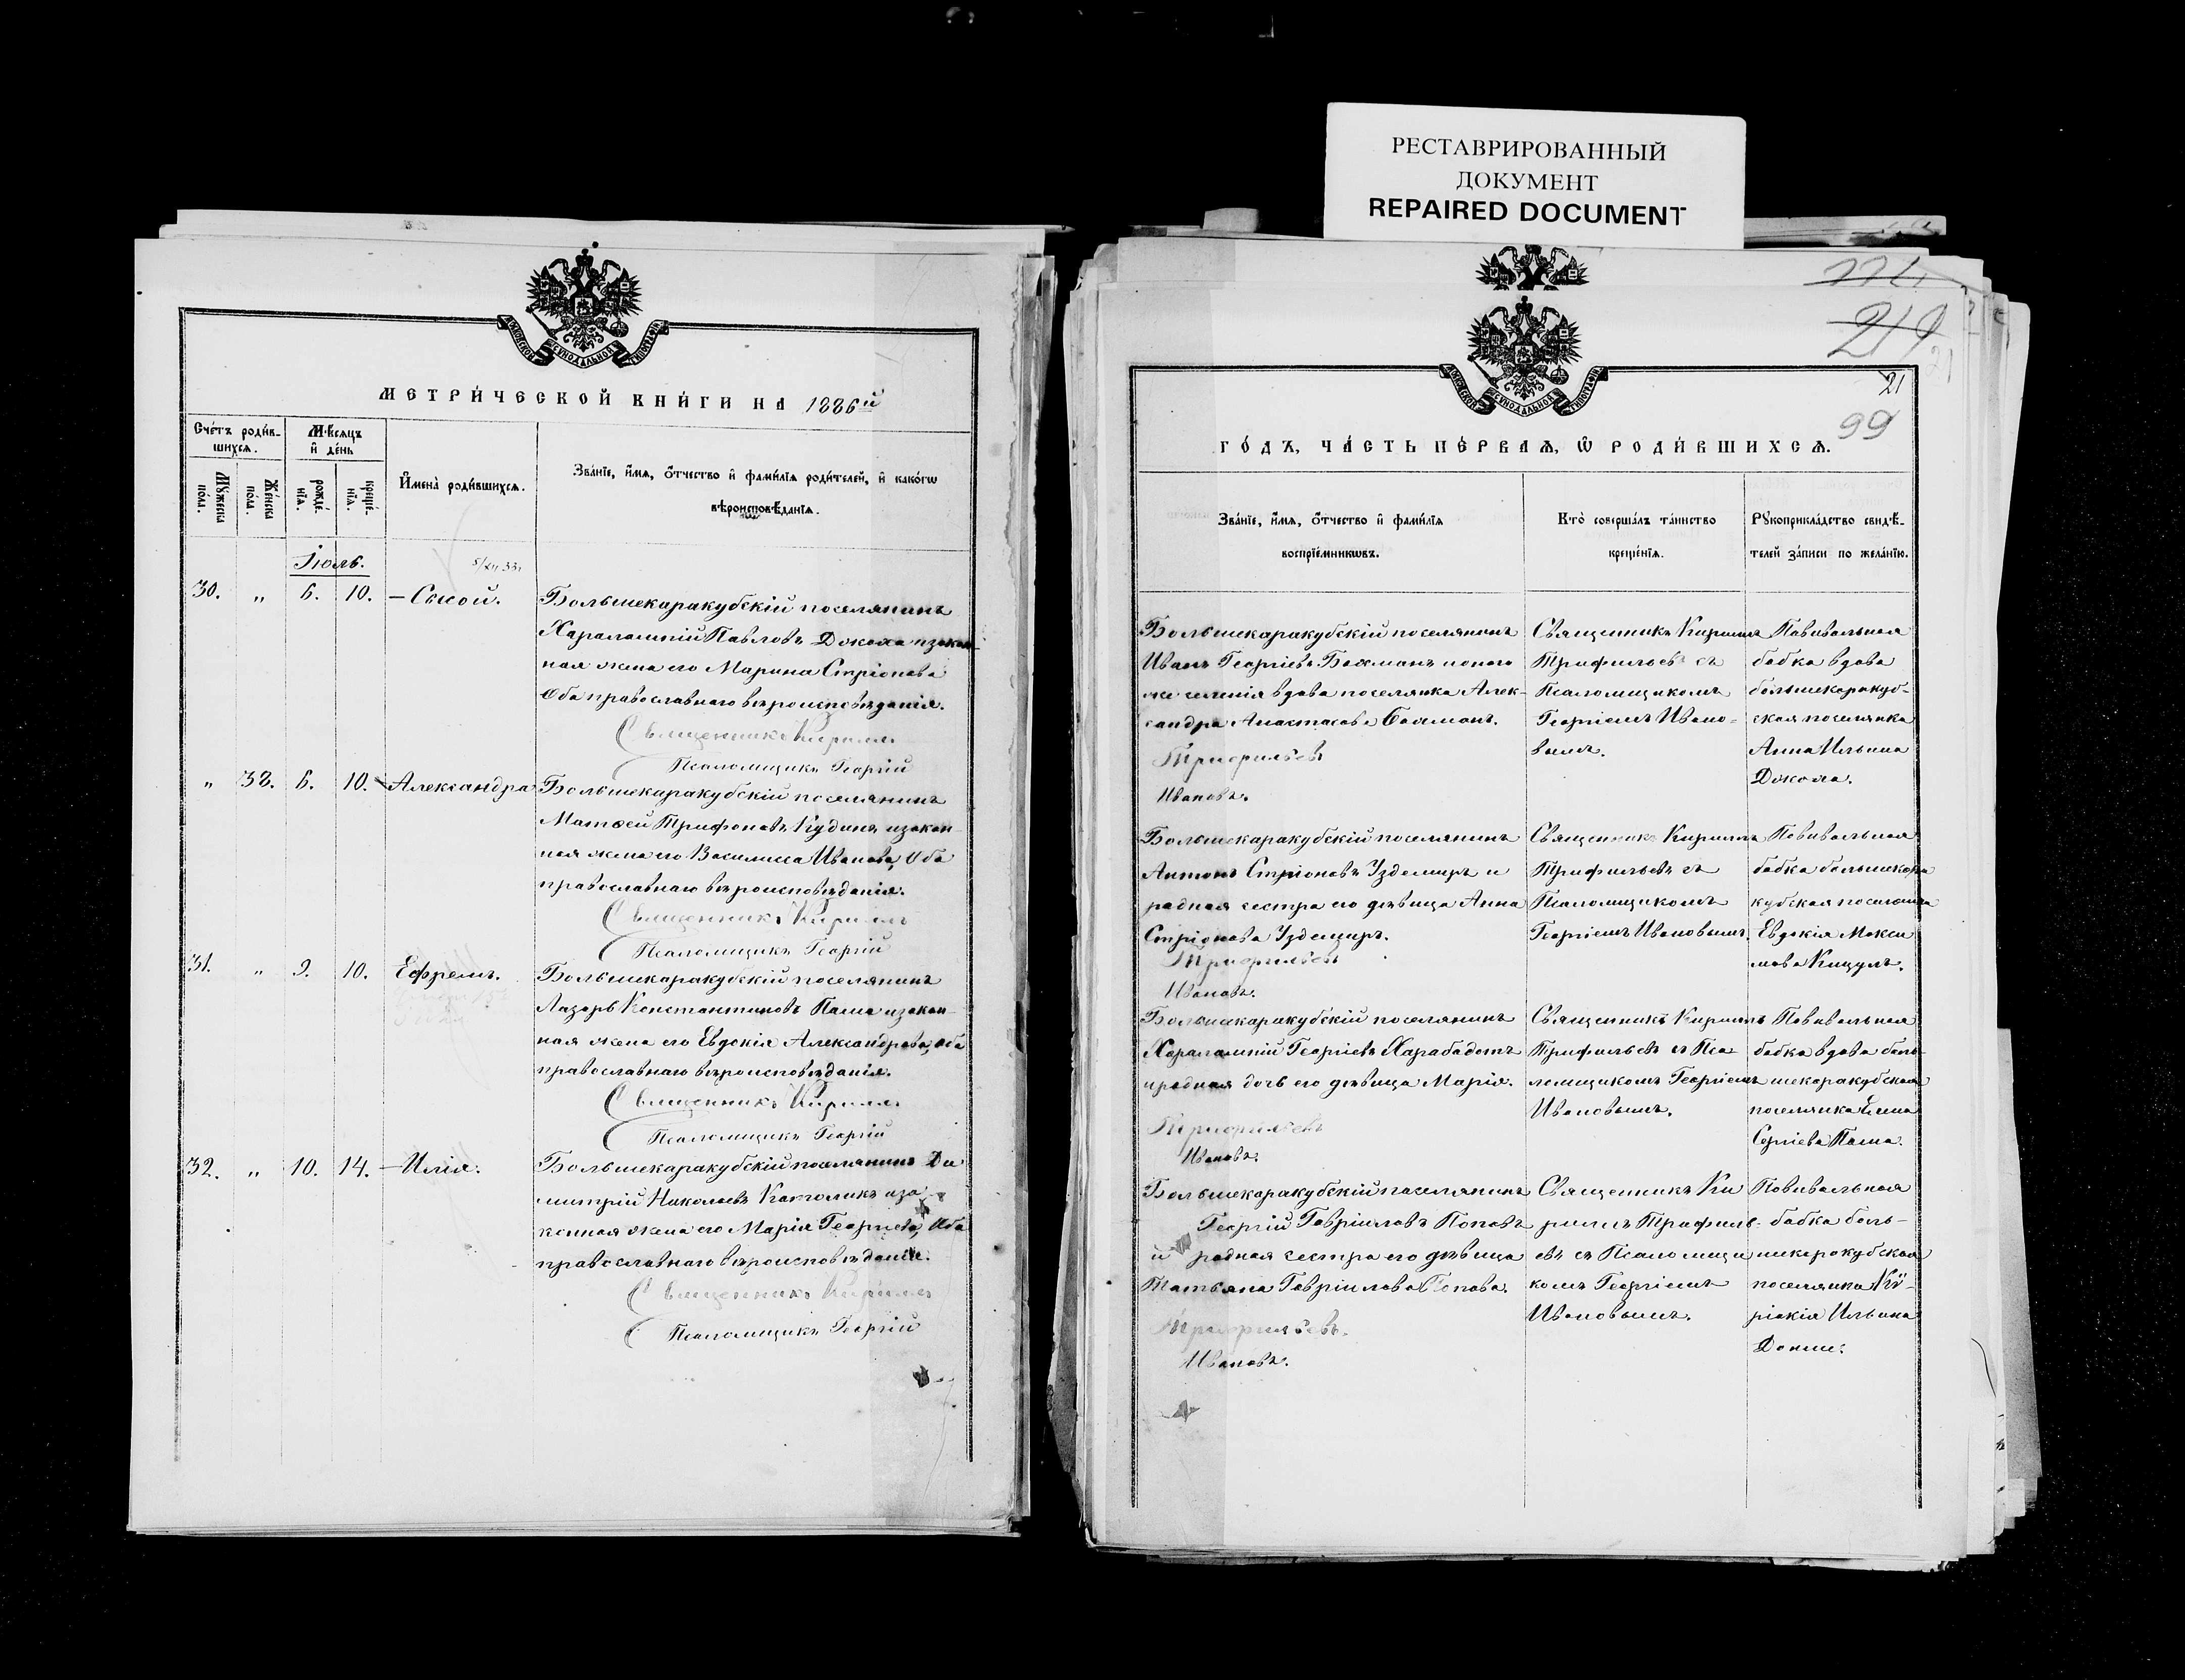 РЕСТАВРИРОВАННЫЙ
ДОКУМЕНТ
REPAIRED DOCUMENT
МЕТРИ́ЧЕСКОЙ КНИ́ГИ НА 1886й
Сче́тъ роди́в-
шихсѧ.
Мѣ́сѧцъ
и҆ де́нь
Мꙋ́жеска
по́ла.
Же́нска
по́ла.
рожде́-
нїѧ.
креще́-
нїѧ.
И҆мена̀ роди́вшихсѧ.
Зва́нїе, и҆́мѧ, ѻ҆́тчество и҆ фами́лїѧ роди́телей, и҆ како́гѡ
вѣроисповѣ́данїѧ.
Іюль.
30. „ 6. 10. – Сысой.
Большекаракубскій поселянинъ
Харалампій Павловъ Джоха и закон-
ная жена его Марина Стріонова
Оба православнаго вѣроисповѣданія.
Священникъ Кириллъ
Псаломщикъ Георгій
„ 38. 6. 10. Александра
Большекаракубскій поселянинъ
Матѳей Трифоновъ Кудинъ и закон-
ная жена его Василиса Иванова, Оба
православнаго вѣроисповѣданія.
Священникъ Кириллъ
Псаломщикъ Георгій
31. „ 9. 10. Ефремъ.
Большекаракубскій поселянинъ
Лазарь Константиновъ Паша и закон-
ная жена его Евдокія Александрова, Оба
православнаго вѣроисповѣданія.
Священникъ Кириллъ
Псаломщикъ Георгій
32. „ 10. 14. – Илія.
Большекаракубскій поселянинъ Ди
митрій Николаевъ Католикъ и за
конная жена его Марія Георгіева, Оба
православнаго вѣроисповѣданія.
Священникъ Кириллъ
Псаломщикъ Георгій
219
21
99
ГО́ДЪ, ЧА́СТЬ ПЕ́РВАѦ, Ѡ҆ РОДИ́ВШИХСѦ.
Зва́нїе, и҆́мѧ, ѻ҆́тчество и҆ фами́лїѧ
воспрїе́мникѡвъ.
Кто̀ соверша́лъ та́инство
креще́нїѧ.
Рꙋкоприкла́дство свидѣ́-
телей за́писи по жела́нїю.
Большекаракубскій поселянинъ
Иванъ Георгіевъ Бахманъ и того
же селенія вдова поселянка Алек-
сандра Анастасова Бахманъ.
Трифильевъ
Ивановъ.
Священникъ Кириллъ
Трифильевъ съ
Псаломщикомъ
Георгіемъ Ивано-
вымъ.
Повивальная
бабка вдова
большекаракуб-
ская поселянка
Анна Ильина
Джоха.
Большекаракубскій поселянинъ
Антонъ Стріоновъ Уздемиръ и
родная сестра его дѣвица Анна
Стріонова Уздемиръ.
Трифильевъ
Ивановъ.
Священникъ Кириллъ
Трифильевъ съ
Псаломщикомъ
Георгіемъ Ивановымъ.
Повивальная
бабка большекара
кубская поселянка
Евдокія Макси
мова Кицулъ.
Большекаракубскій поселянинъ
Харалампій Георгіевъ Харабадотъ
и родная дочь его дѣвица Марія.
Трифильевъ
Ивановъ.
Священникъ Кириллъ
Трифильевъ съ Пса
ломщикомъ Георгіемъ
Ивановымъ.
Повивальная
бабка вдова боль-
шекаракубская
поселянка Елена
Сергіева Паша.
Большекаракубскій поселянинъ
Георгій Гавріиловъ Поповъ
и родная сестра его дѣвица
Татьяна Гавріилова Попова.
Трифильевъ.
Ивановъ.
Священникъ Ки
риллъ Трифиль-
евъ съ Псаломщи
комъ Георгіемъ
Ивановымъ.
Повивальная
бабка боль-
шекаракубская
поселянка Кѵ-
ріакія Ильина